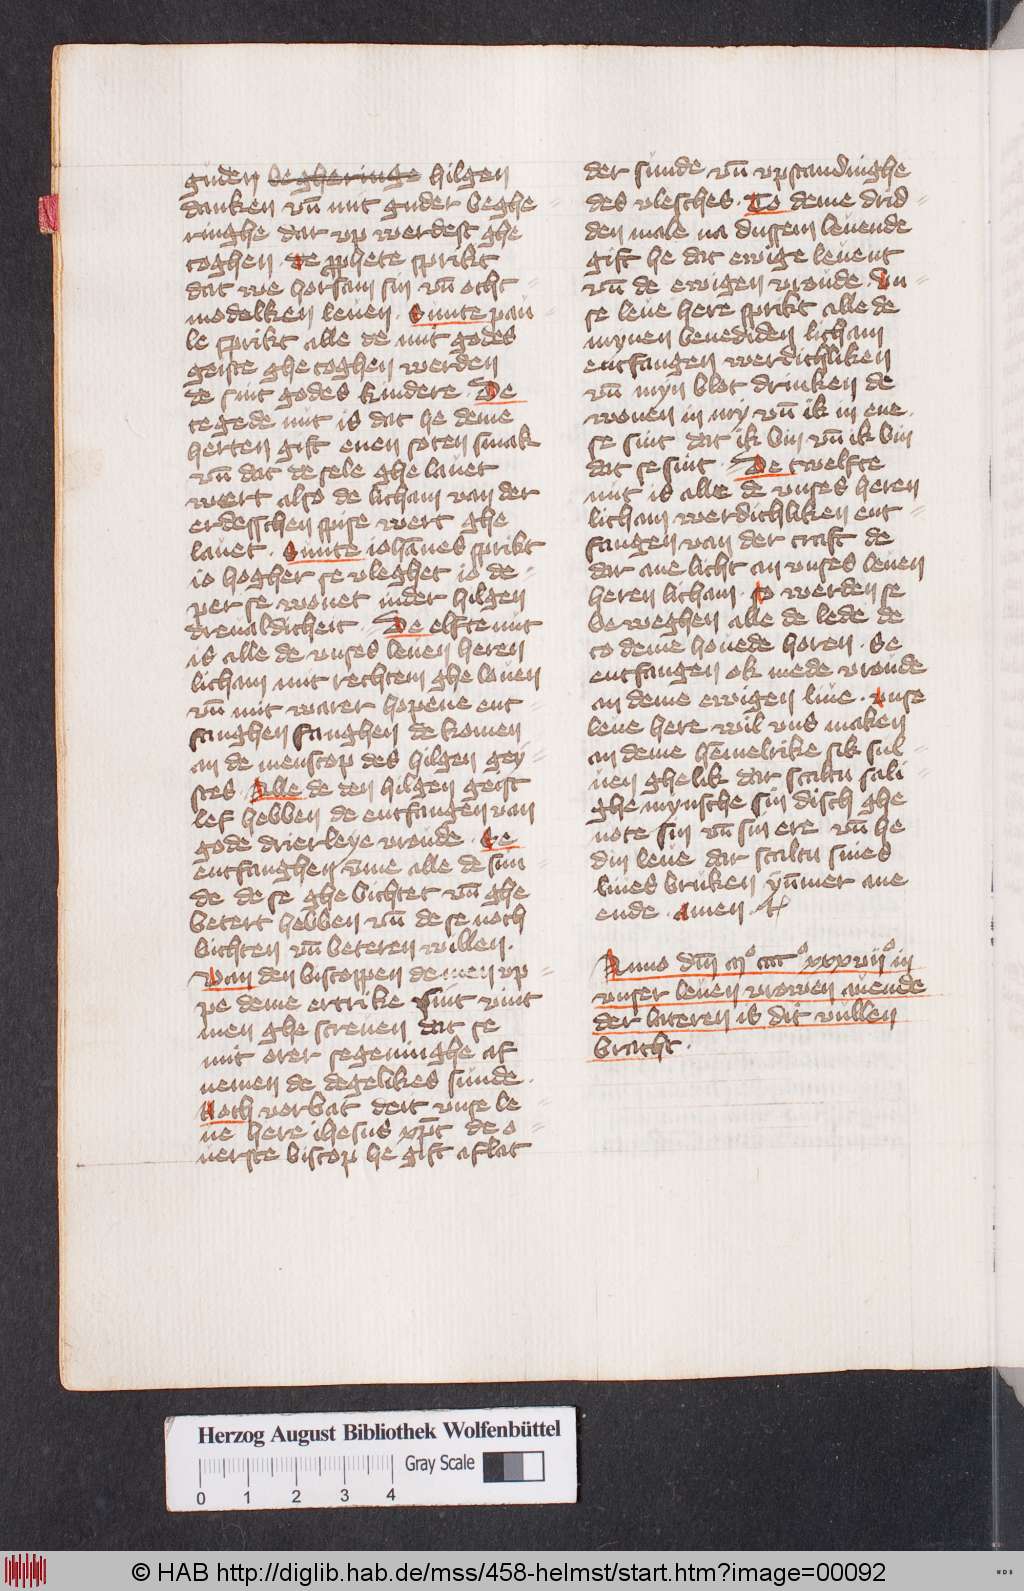 guden begheringe hilgen
danken vn̄ mit guder beghe
ringhe dar vp werdest ghe
toghen . De pphete sprikt
dat we horsam sin vn̄ otht
modelken leuen . Sunte pau
le sprikt alle de mit godes
geiste ghe toghen werden
de sint godes kindere . De
tegede nut is dat he deme
herten gift enen soten smak
vn̄ dat de sele ghe lauet
wert also de licham van der
erdesschen spise wert ghe
lauet . Sunte iohānes sprikt
io hogher se vleghet io de
per se wonet inder hilgen
dreualdicheit . De elfte nut
is alle de vnses leuen heren
licham mit rechtem ghe louen
vn̄ mit warer hopene ent
fanghen fanghen de komen
an de menscop des hilgen gey
stes . Alle de den hilgen geist
lef hebben de entfangen van
gode drierleye vroude . Se
entfanghen vme alle de sun
de de se ghe bichtet vn̄ ghe
betert hebben vn̄ de se noch
bichten vn̄ beteren willen .
Van den biscoppen de men vp
pe deme ertrike sint vint
men ghe screuen dat se
mit orer segeninghe af
nemen de degelikes sunde .
Noch vorbat deit vnse le
ue here ihesus xp̄c de o
uerste biscop he gift aflat
der sunde vn̄ vpstandinghe
des vlesches . To deme drid
den male na dussem leuende
gift he dat ewige leuent
vn̄ de ewigen vroude . Vn
se leue here sprikt alle de
mynen benediden licham
entfangen werdichliken
vn̄ myn blot drinken de
wonen in my vn̄ ik in ene .
se sint dat ik bin vn̄ ik bin
dat se sint . De twelfte
nut is alle de vnses heren
licham werdichliken ent
fangen van der craft de
dar aue licht an vnses leuen
heren licham . so werden se
beweghen alle de lede de
to deme houede horen . Se
entfangen ok mede vroude
an deme ewigen liue . vnse
leue here wil vns maken
an deme hēmelrike sik sul
uen ghelik dar scaltu sali
ghe mynsche sin disch ghe
note sin vn̄ sin ere vn̄ he
din leue dar scaltu sines
liues bruken yn̄mer ane
ende . amen .
Anno dm̄ mᵒ ccccᵒ xxxviiᵒ in
vnser leuen vrowen auende
der lateren is dit vullen
bracht .
Herzog August Bibliothek Wolfenbüttel
Gray Scale
0 1 2 3 4
© HAB http://diglib.hab.de/mss/458-helmst/start.htm?image=00092